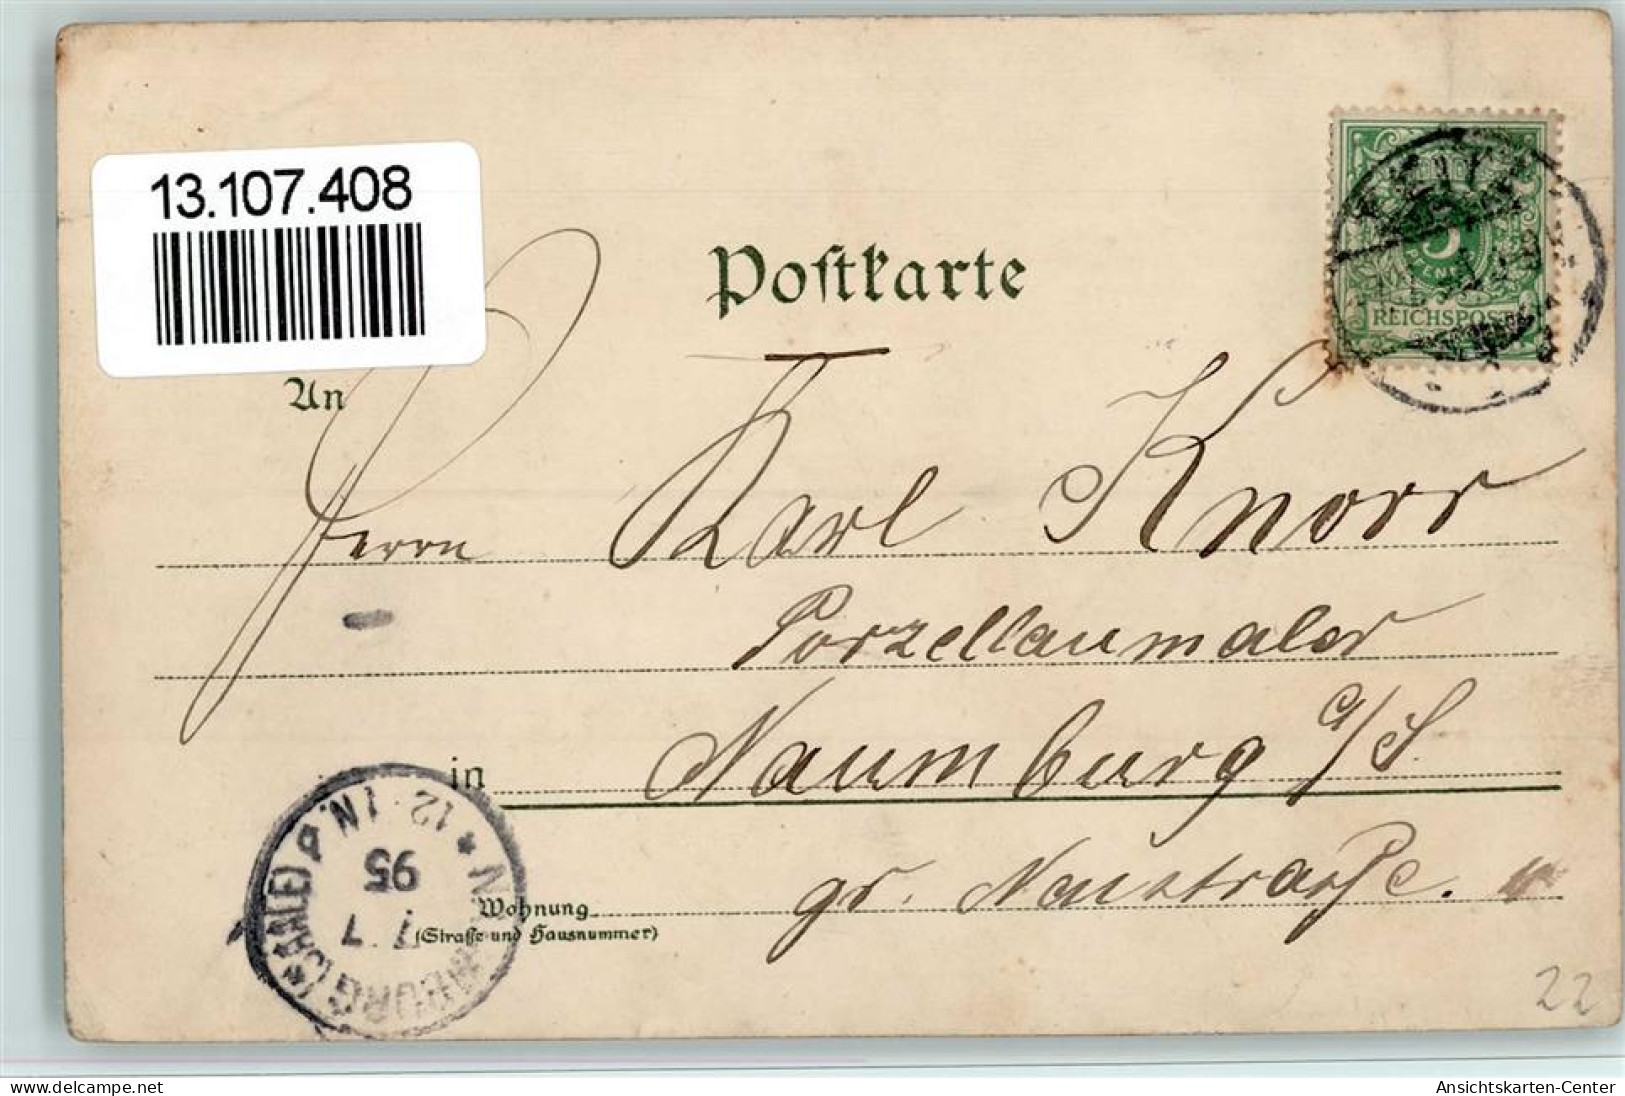 13.107.408
Postkarte
5
PFENNIG
REICHSPOST
An
Herrn Karl Knorr
Porzellanmaler
in Naumburg a/S.
gr. Neustraße.
Wohnung
(Straße und Hausnummer)
NAUMBURG (SAALE)
12-1N.
1 7
95
22
www.delcampe.net
Ansichtskarten-Center